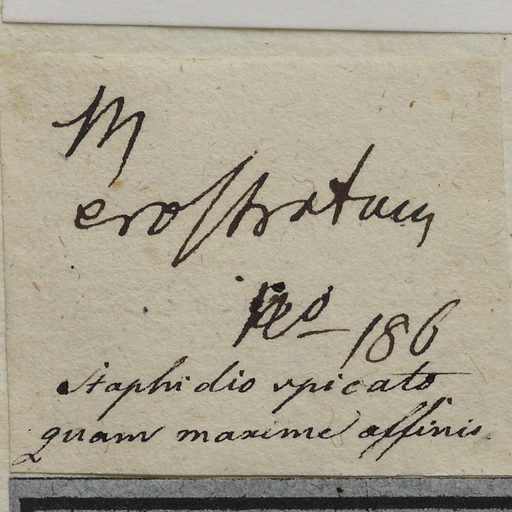 M
erostratum
No 186
Staphidio spicato
quam maxime affinis.